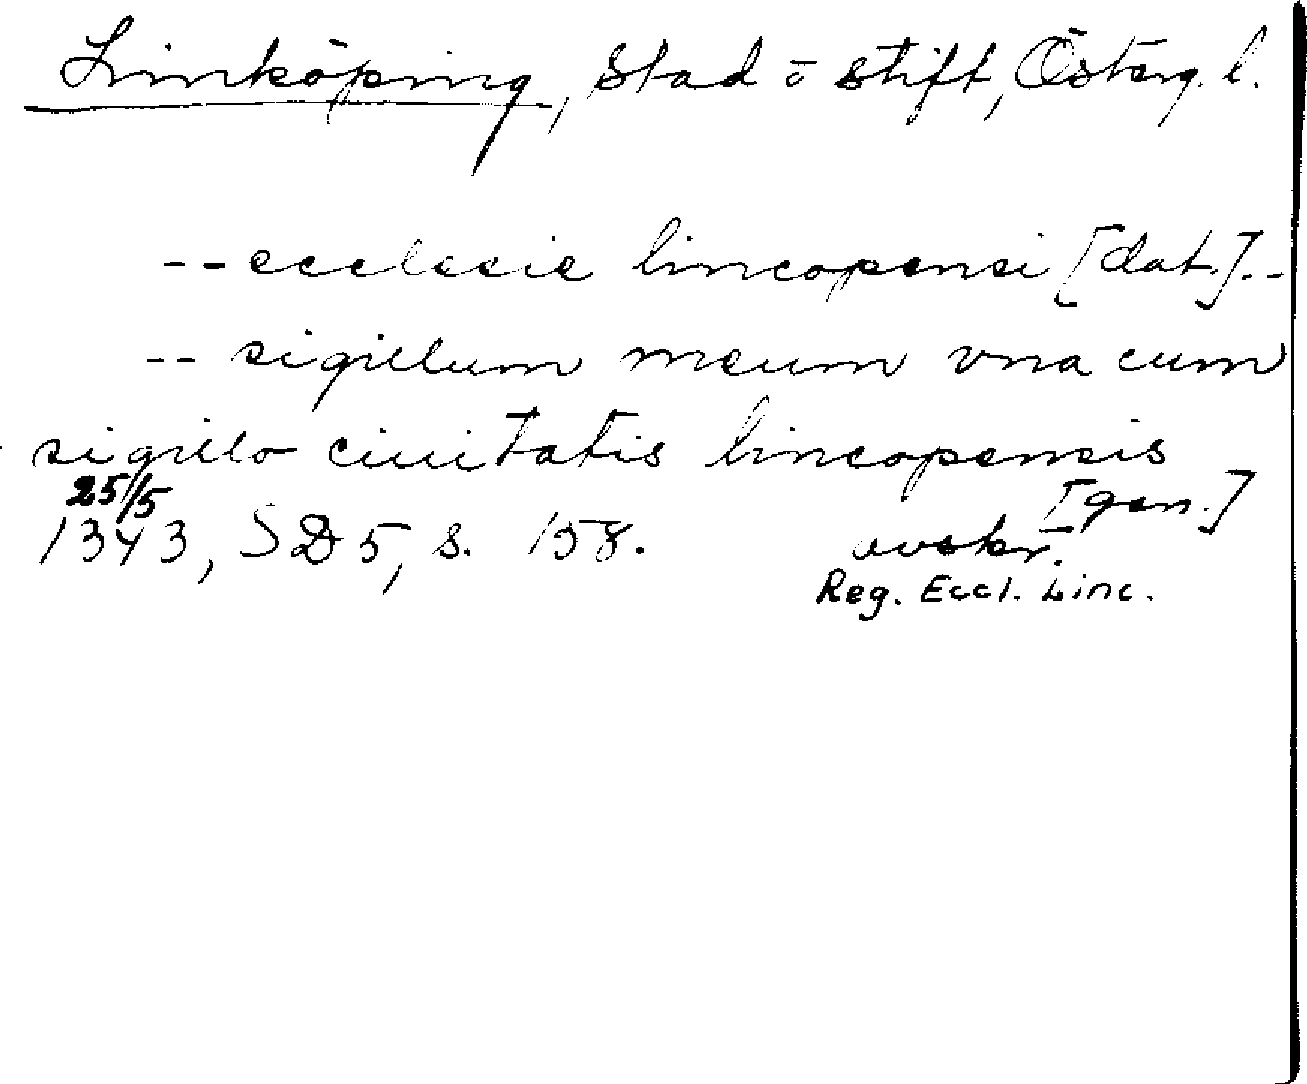 Linköping, stad o stift, Österg. l.
-- ecclesie lincopensi [dat.]. -
-- sigillum meum vna cum
sigillo ciuitatis lincopensis
[gen.]
25/5
1343, SD 5, s. 158. avskr.
Reg. Eccl. Linc.